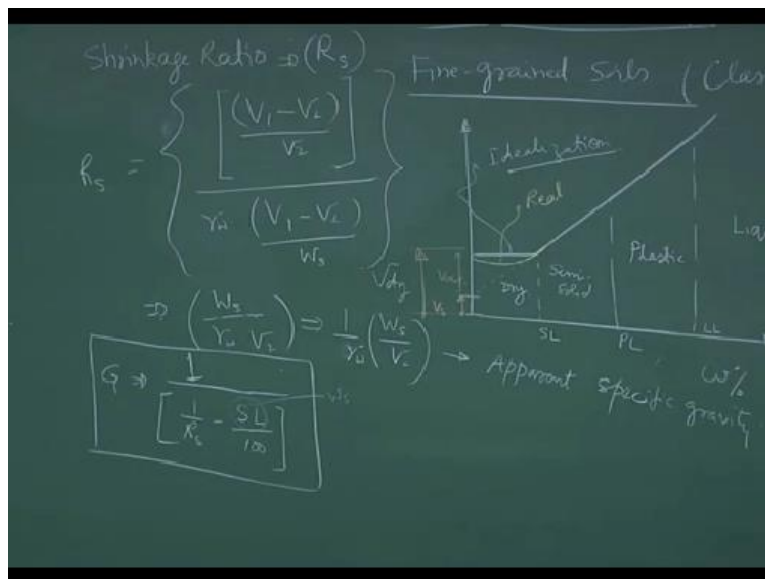 Shrinkage Ratio ⇒ (Rs)
Rs = { [ (V1 - V2) / V2 ] / γw (V1 - V2) / Ws }
⇒ ( Ws / γw V2 ) ⇒ 1/γw ( Ws / V2 ) → Apparant specific gravity
G ⇒ 1 / [ 1/Rs - SL/100 ]
Fine-grained Soils (Clas
Idealization
Real
Vdry
Vs
Dry
Semi-
solid
Plastic
Liqu
SL
PL
LL
w%